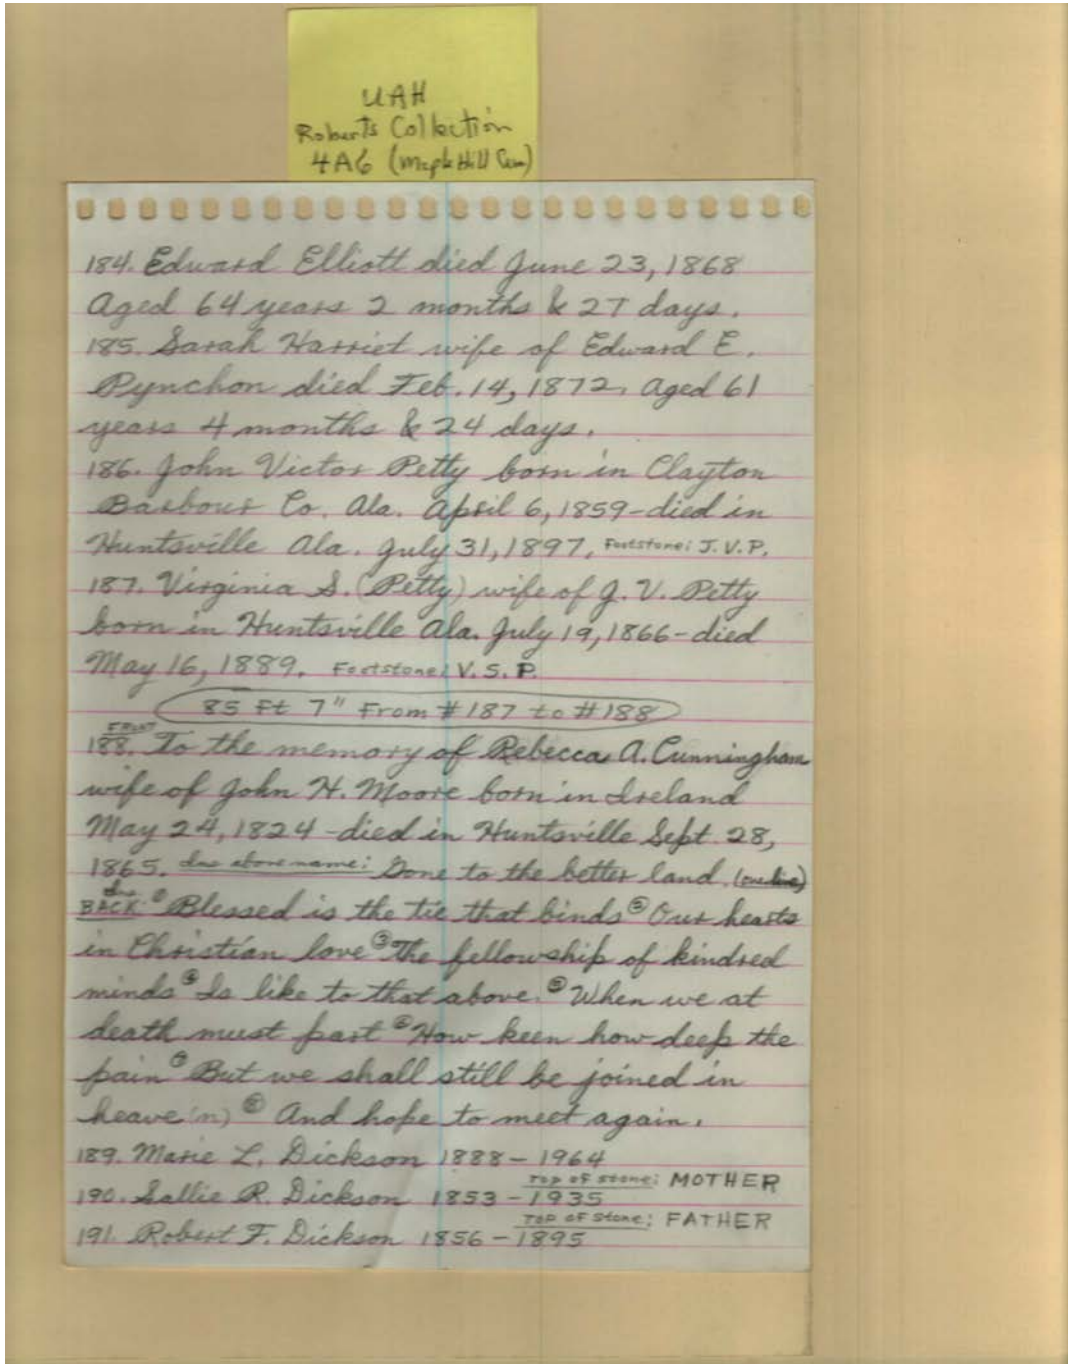 UAH
Roberts Collection
4A6 (Maple Hill Cem)
184. Edward Elliott died June 23, 1868
Aged 64 years 2 months & 27 days.
185. Sarah Harriet wife of Edward E.
Pynchon died Feb. 14, 1872. Aged 61
years 4 months & 24 days.
186. John Victor Petty born in Clayton
Barbour Co. Ala. April 6, 1859-died in
Huntsville Ala. July 31, 1897. Footstone: J. V. P.
187. Virginia S. (Petty) wife of J. V. Petty
born in Huntsville Ala. July 19, 1866-died
May 16, 1889. Footstone: V. S. P.
85 Ft 7" From #187 to #188
FRONT
188. To the memory of Rebecca A. Cunningham
wife of John H. Moore born in Ireland
May 24, 1824-died in Huntsville Sept. 28,
1865. above name: Gone to the better land. (one line)
BACK: ① Blessed is the tie that binds ② Our hearts
in Christian love ③ The fellowship of kindred
minds ④ Is like to that above. ⑤ When we at
death must part ⑥ How keen how deep the
pain ⑦ But we shall still be joined in
heave(n) ⑧ And hope to meet again.
189. Marie L. Dickson 1888-1964
Top of stone: MOTHER
190. Sallie R. Dickson 1853-1935
Top of stone: FATHER
191. Robert F. Dickson 1856-1895